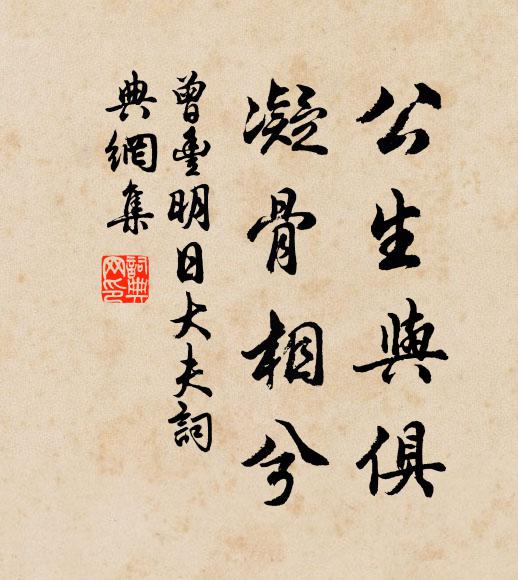 公生與俱
凝骨相兮
曾豐明日大夫詞
典網集
詞典
网印